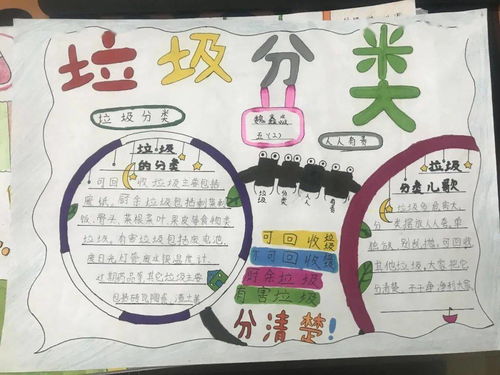 垃圾分类
垃圾分类
五(2)
人人有责
垃圾
的分类
可回收垃圾主要包括
废纸,厨余垃圾包括剩菜剩
饭、骨头、菜根菜叶、果皮等食物类
垃圾,有害垃圾包括废电池、
废日光灯管废水银温度计、
过期药品等其它垃圾主要
包括砖瓦陶瓷,渣土等
垃圾 分类 人人 有责
可回收垃圾
不可回收垃圾
厨余垃圾
有害垃圾
分清楚!
垃圾
分类儿歌
分类摆放人人夸,单
别乱抛,可回收
其他垃圾,大家把它
分清楚,干干净净利大家